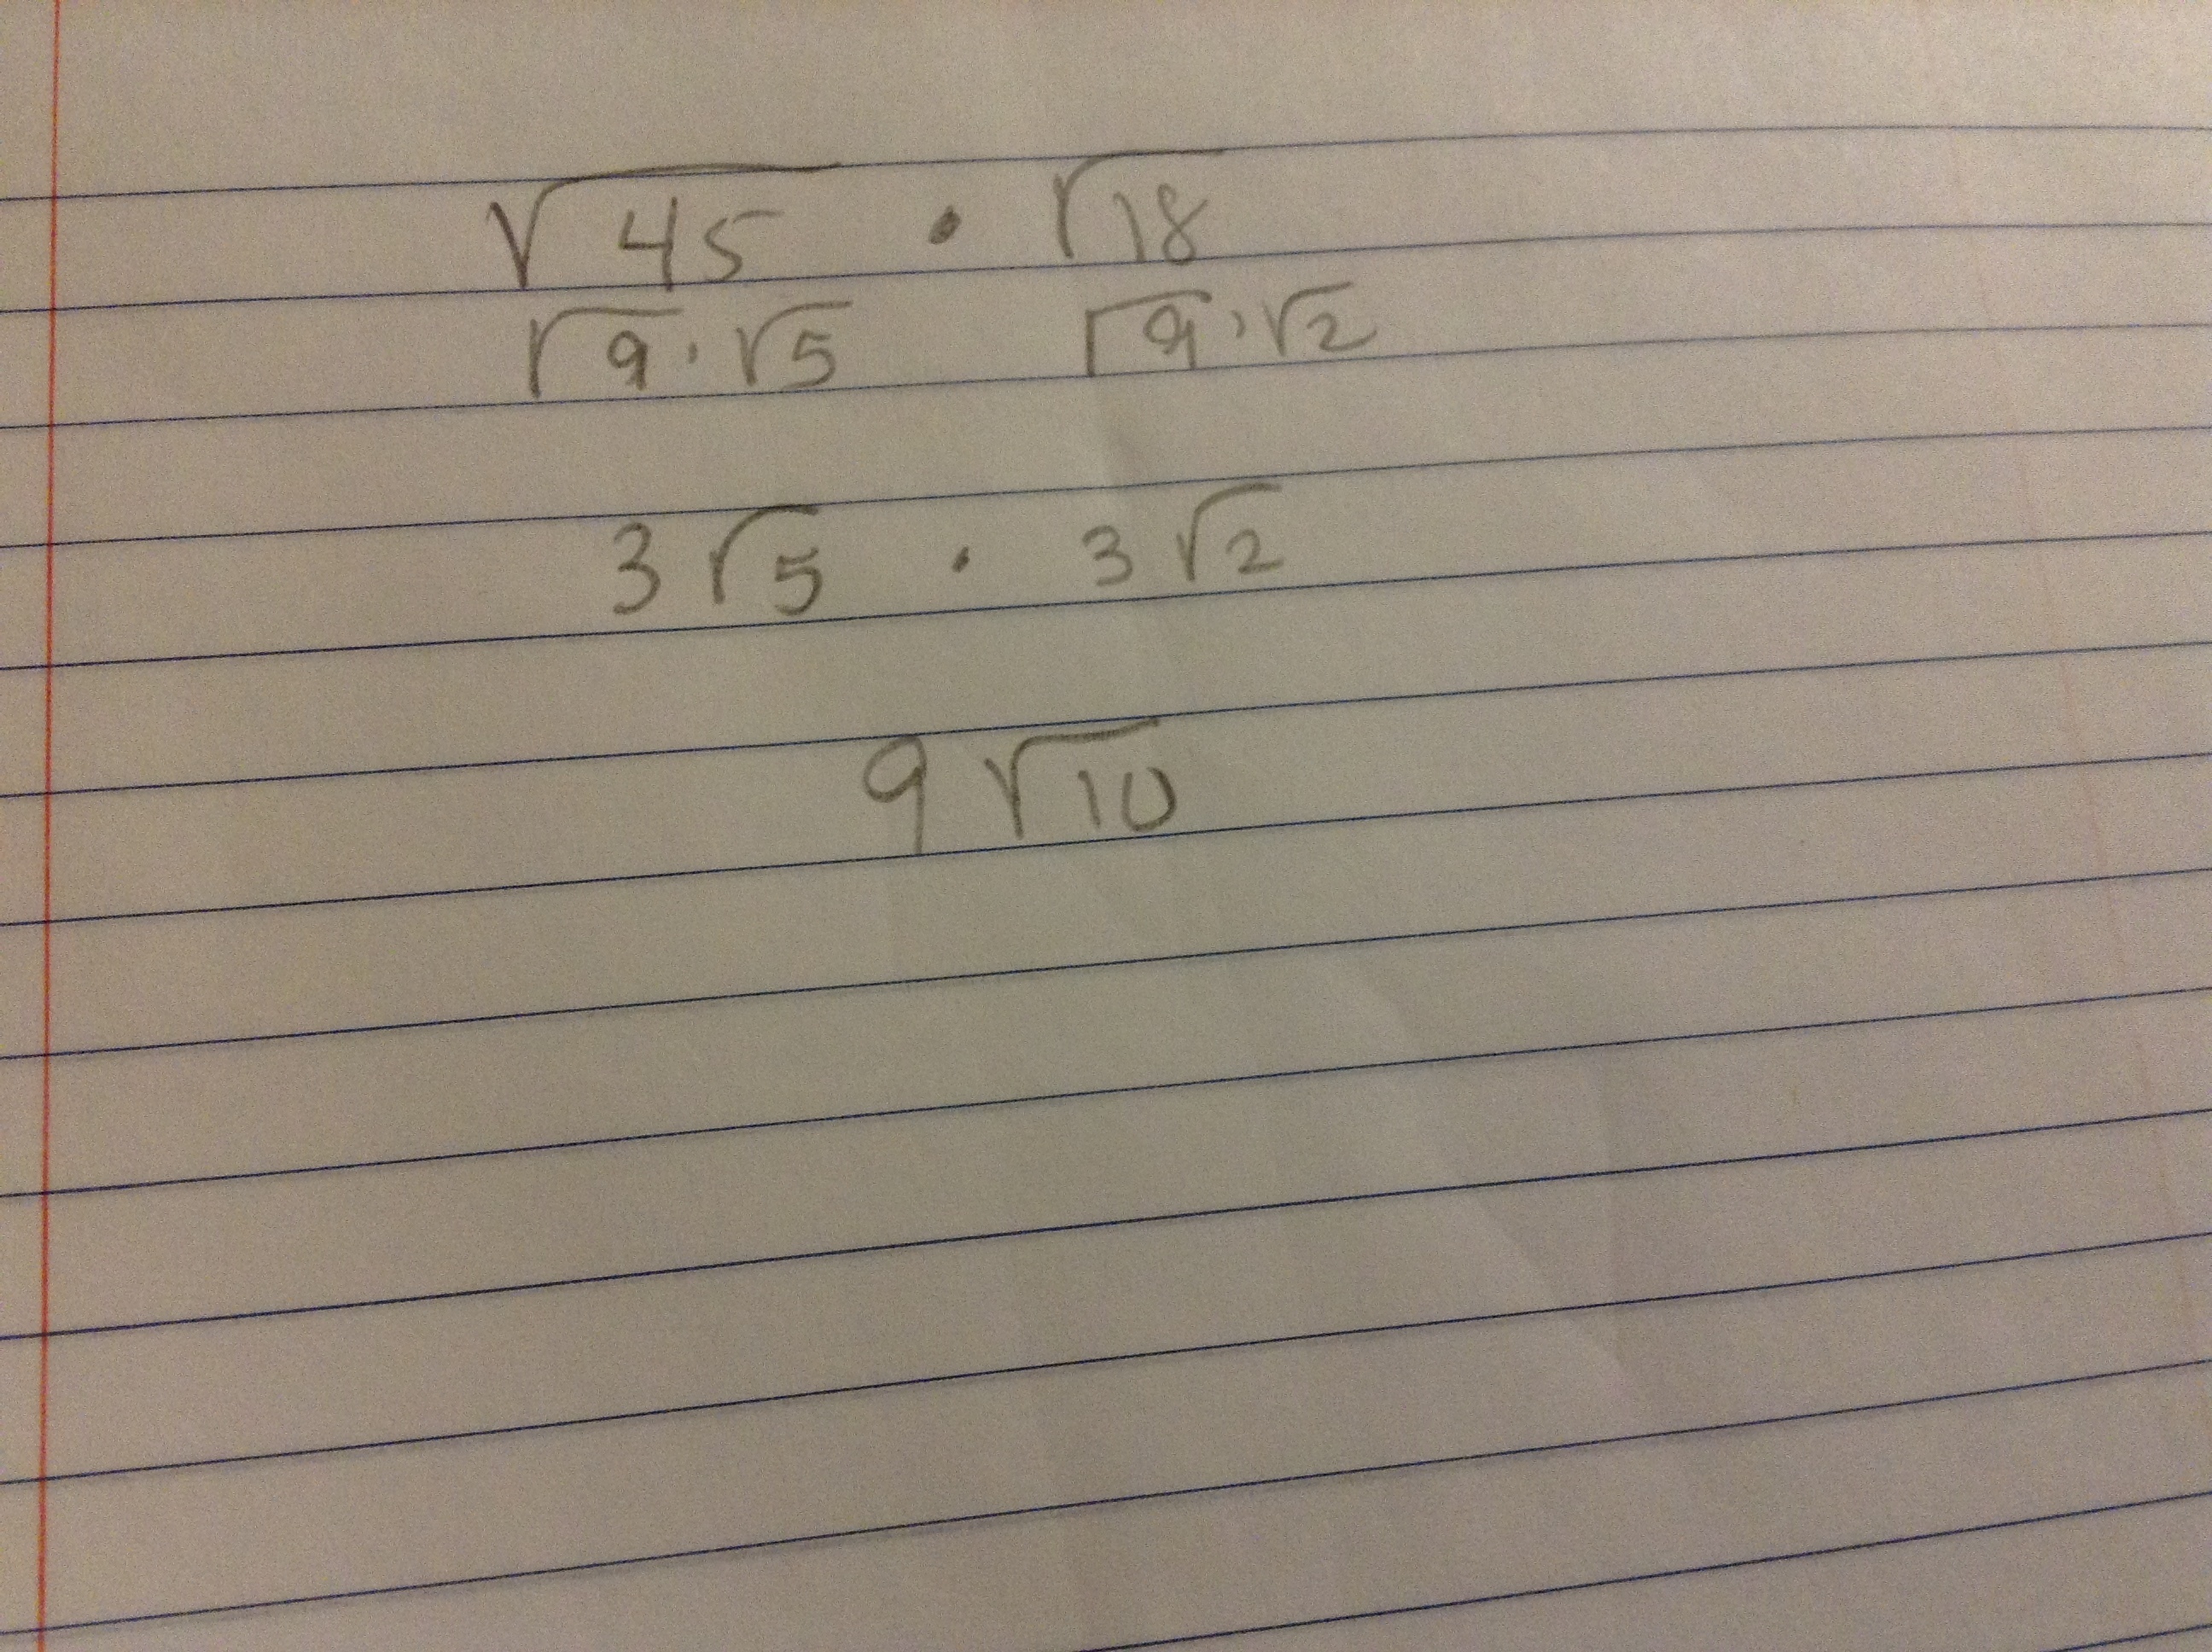 √45 · √18
√9 · √5 √9 · √2
3√5 · 3√2
9√10